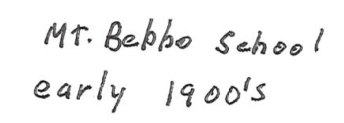 Mt. Bebbo School
early 1900's